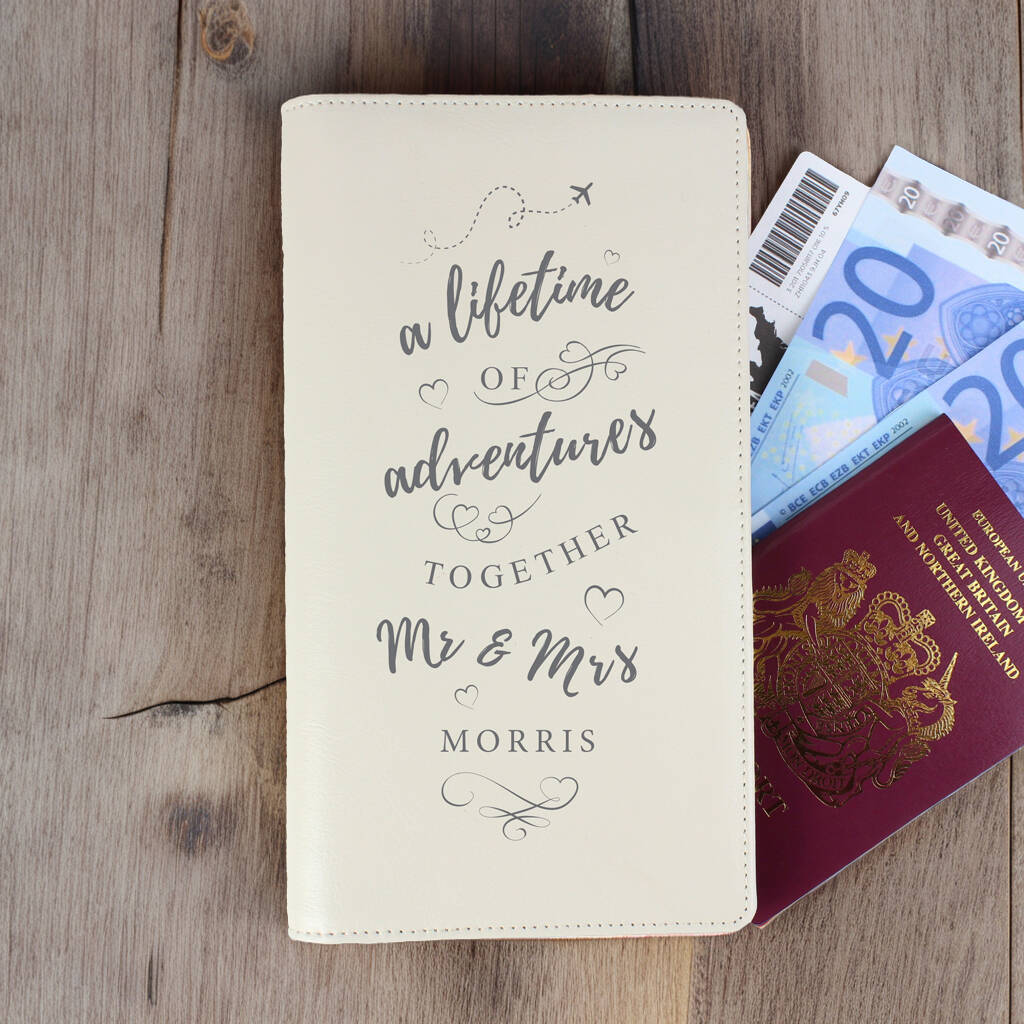 a lifetime
OF
adventures
TOGETHER
Mr & Mrs
MORRIS
67YH09
20
20
20
EKT EKP 2002
© BCE ECB EZB EKT EKP 2002
EUROPEAN U
UNITED KINGDOM
GREAT BRITAIN
AND NORTHERN IRELAND
RT